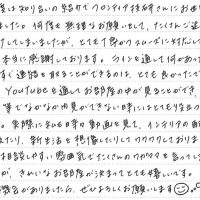 僕は知り合いの紹介でフロンティア技研さんにお世
ました。何度も無理なお願いをして、たくさんご迷
けしてしまいましたが、とても丁寧かつスムーズに対応して
本当に感謝しております。ラインを通して何かあって
すぐ連絡を取ることができるのは、とても良かったで
YouTubeを通してお部屋の中が見ることができ、
までなかなか内見ができない時にはとても役立つ
。実際に私も日々の動画を見て、インテリアの
たり、新生活を想像したりしてワクワクしておりま
は相談しやすい雰囲気でたくさんのワガママを言ってし
が、きれいなお部屋が決まってとても嬉しいです。
機会がありましたら、ぜひよろしくお願いします